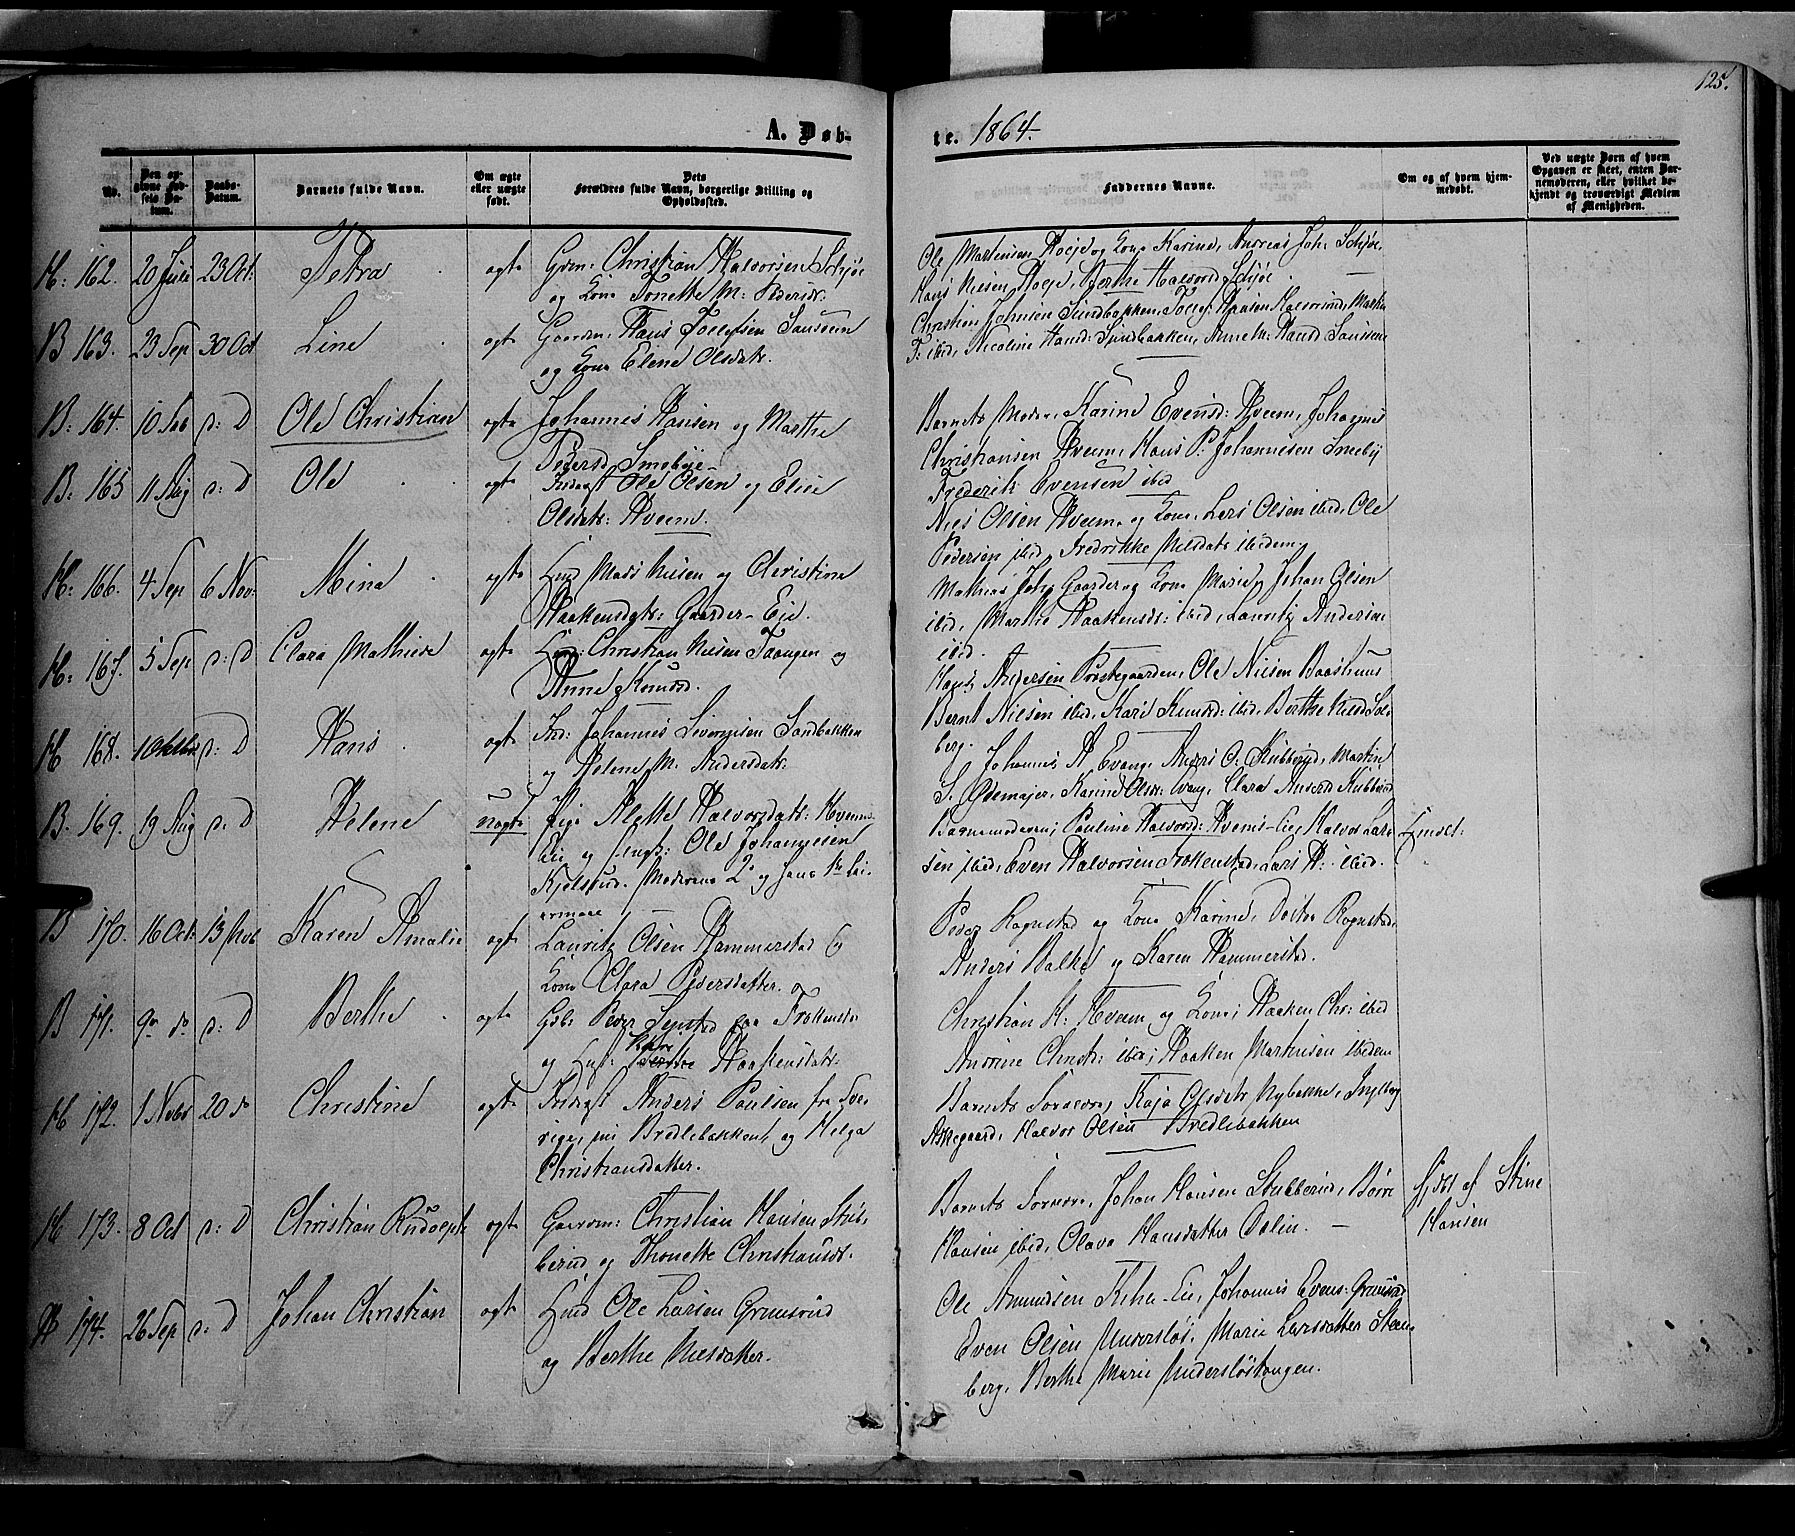 125.
A. Døb-
te. 1864.
No.
Den opgivne Fødsels Datum.
Daabs-Datum.
Barnets fulde Navn.
Om ægte eller uægte født.
Dets Forældres fulde Navn, borgerlige Stilling og Opholdssted.
Faddernes Navne.
Om og af hvem hjemmedøbt.
Ved uægte Børn af hvem Opgaven er skeet, enten Barnemoderen, eller hvilket bekjendt og troværdigt Medlem af Menigheden.
H: 162. 20 Juli 23 Oct. Petra ægte Grdm: Christian Halvorsen Schjøe
og Kone Tonette M: Pedersdt.
Ole Martinsen Hoeje og Kone Karine, Andreas Joh. Schjøe,
Hans Nielsen Hoeje, Berthe Halvorsd. Schjøe.
B 163. 23 Sep 30 Oct Line ægte Gaardm: Hans Tollefsen Sausøien
og Kone Elene Olsdatr.
Christian Johnsen Sundbakken, Martin
T: ibid, Nicoline Hansd: Sundbakken, Hansd
B: 164. 10 d: D Ole Christian ægte Johannes Hansen og Marthe
Pedersd. Smebye
Barnets Moder, Karine Evensd: Hveem, Johannes
Christiansen Hveem, Hans P. Johannesen Smeby
Frederik Evensen ibid
B: 165 11 Aug d: D Ole ægte Inderst Ole Olsen og Elise
Olsdatr: Hveem.
Niels Olsen Hveem og Kone, Lars Olsen ibid, Ole
Pedersen ibid, Fredrikke Nilsdatr ibidem
H: 166. 4 Sep 6 Nov. Mina ægte Hmd Mads Nilsen og Christine
Haakensdatr: Gaarder-Eie.
Mathias Joh: Gaarder og Kone Marie, Johan Olsen
ibid, Marthe Haakensd: ibid, Lauritz Andersen
ibid.
H: 167. 5 Sep d: D Clara Mathilde ægte Hmd: Christian Nilsen Taangen og
Anne
Hans Andersen Prestegaarden, Ole Nilsen Baashuus
Bernt Nielsen ibid, Kari Knudsd: ibid, Berthe Sol-
berg.
H 168. 1 Oktbr d: D Hans ægte Ind: Johannes Sivertsen Sandbakken
og Helene M. Andersdatr.
Johannes A. Evang, Anders O. Stubberud, Martin
S. Karine Olsdr: Evang, Clara Andersd Stubberud
B. 169. 19 Aug d: D Helene uægte Pige Alette Halvorsdatr: Hveems-
Eie og Ungk: Ole Johannesen
Kjelsrud. Moderens 2 og hans 1ste Lei-
ermaal
Barnemoderen, Pauline Halvorsd: Hveems-Eie, Halvor Lar-
sen ibid, Even Halvorsen Frokenstad, Lars H: ibid.
B 170. 16 Oct. 13 Nov Karen Amalie ægte Lauritz Olsen Hammerstad og
Kone Clara Pedersdatter.
Peder Rognstad og Kone Karine, Rognstad,
Anders Balke og Karen Hammerstad.
B 171. 9de do d: D Berthe ægte Gdb: Peder paa Frokenstad
og Hust: Kari Haakensdatr.
Christian H: Hveem og Kone, Haaken Chr: ibid
Christ: ibid, Haaken Martinsen ibidem
H 172. 1 Novbr 20 do Christine ægte Inderst Anders Paulsen fra Sve-
rige, nu Bredlebakken, og Helga
Christiansdatter.
Barnets Forældre, Kaja Olsdatr Nybakke,
Askegaard, Halvor Olsen Bredlebakken
H 173. 8 Oct d: D Christian Rudolph ægte Gaardm: Christian Hansen Stub-
berud og Thonette Christiansdr.
Barnets Forældre, Johan Hansen Stubberud, Børre
Hansen ibid, Olava Hansdatter Dalin.
Hjdbt af Stine
Hansen
H 174. 26 Sep d: D Johan Christian ægte Hmd Ole Larsen Grimsrud
og Berthe Nilsdatter.
Ole Amundsen Eie, Johannes Evens: Grimsrud
Even Olsen Undersløs, Marie Larsdatter Steen-
berg, Berthe Marie Undersløstangen.